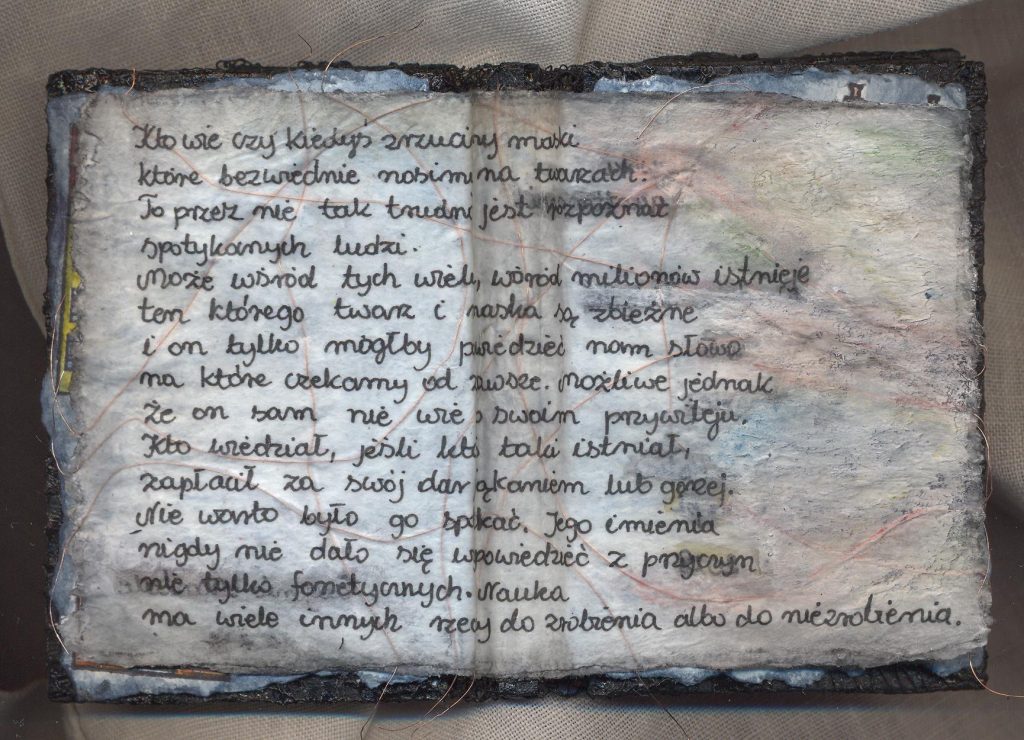 Kto wie czy kiedyś zrzucimy maski
które bezwiednie nosimy na twarzach.
To przez nie tak trudno jest rozpoznać
spotykanych ludzi.
Może wśród tych wielu, wśród milionów istnieje
ten którego twarz i maska są zbieżne
i on tylko mógłby powiedzieć nam słowo
na które czekamy od zawsze. Możliwe jednak
że on sam nie wie o swoim przywileju.
Kto wiedział, jeśli kto taki istniał,
zapłacił za swój dar jąkaniem lub gorzej.
Nie warto było go spotkać. Jego imienia
nigdy nie dało się wypowiedzieć z przyczyn
nie tylko fonetycznych. Nauka
ma wiele innych rzeczy do zrobienia albo do niezrobienia.